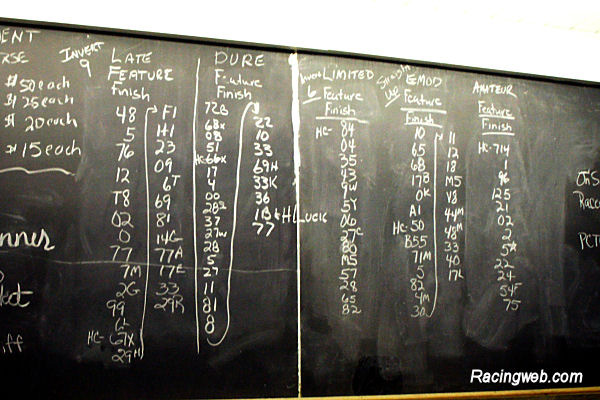 ENT
RSE
$50 each
$25 each
$20 each
$15 each
nner
INVERT
9
LATE
FEATURE
Finish
48
5
76
12
T8
02
0
77
7M
2G
99
HC- 67X
29M
F1
H1
23
09
6T
69
81
14G
77A
17E
33
29R
PURE
Feature
Finish
72B
68x
08
51
HC-66x
17
4
00
28²
37
27w
28
5
27
11
81
8
22
10
33
69H
33K
36
77
Invert
6
LIMITED
Feature
Finish
HC- 84
04
35
43
9W
5Y
06
27C
80
M5
57
28
65
82
Straight
UP
EMOD
Feature
Finish
10
65
6B
17B
0K
A1
HC-50
B55
71M
5
82
4M
30
11
12
18
M5
V8
44M
48M
33
40
17L
AMATEUR
Feature
Finish
HC-714
1
96
125
21
02
2
5*
22
24
54F
75
OnS
Racc
PCT
Racingweb.com